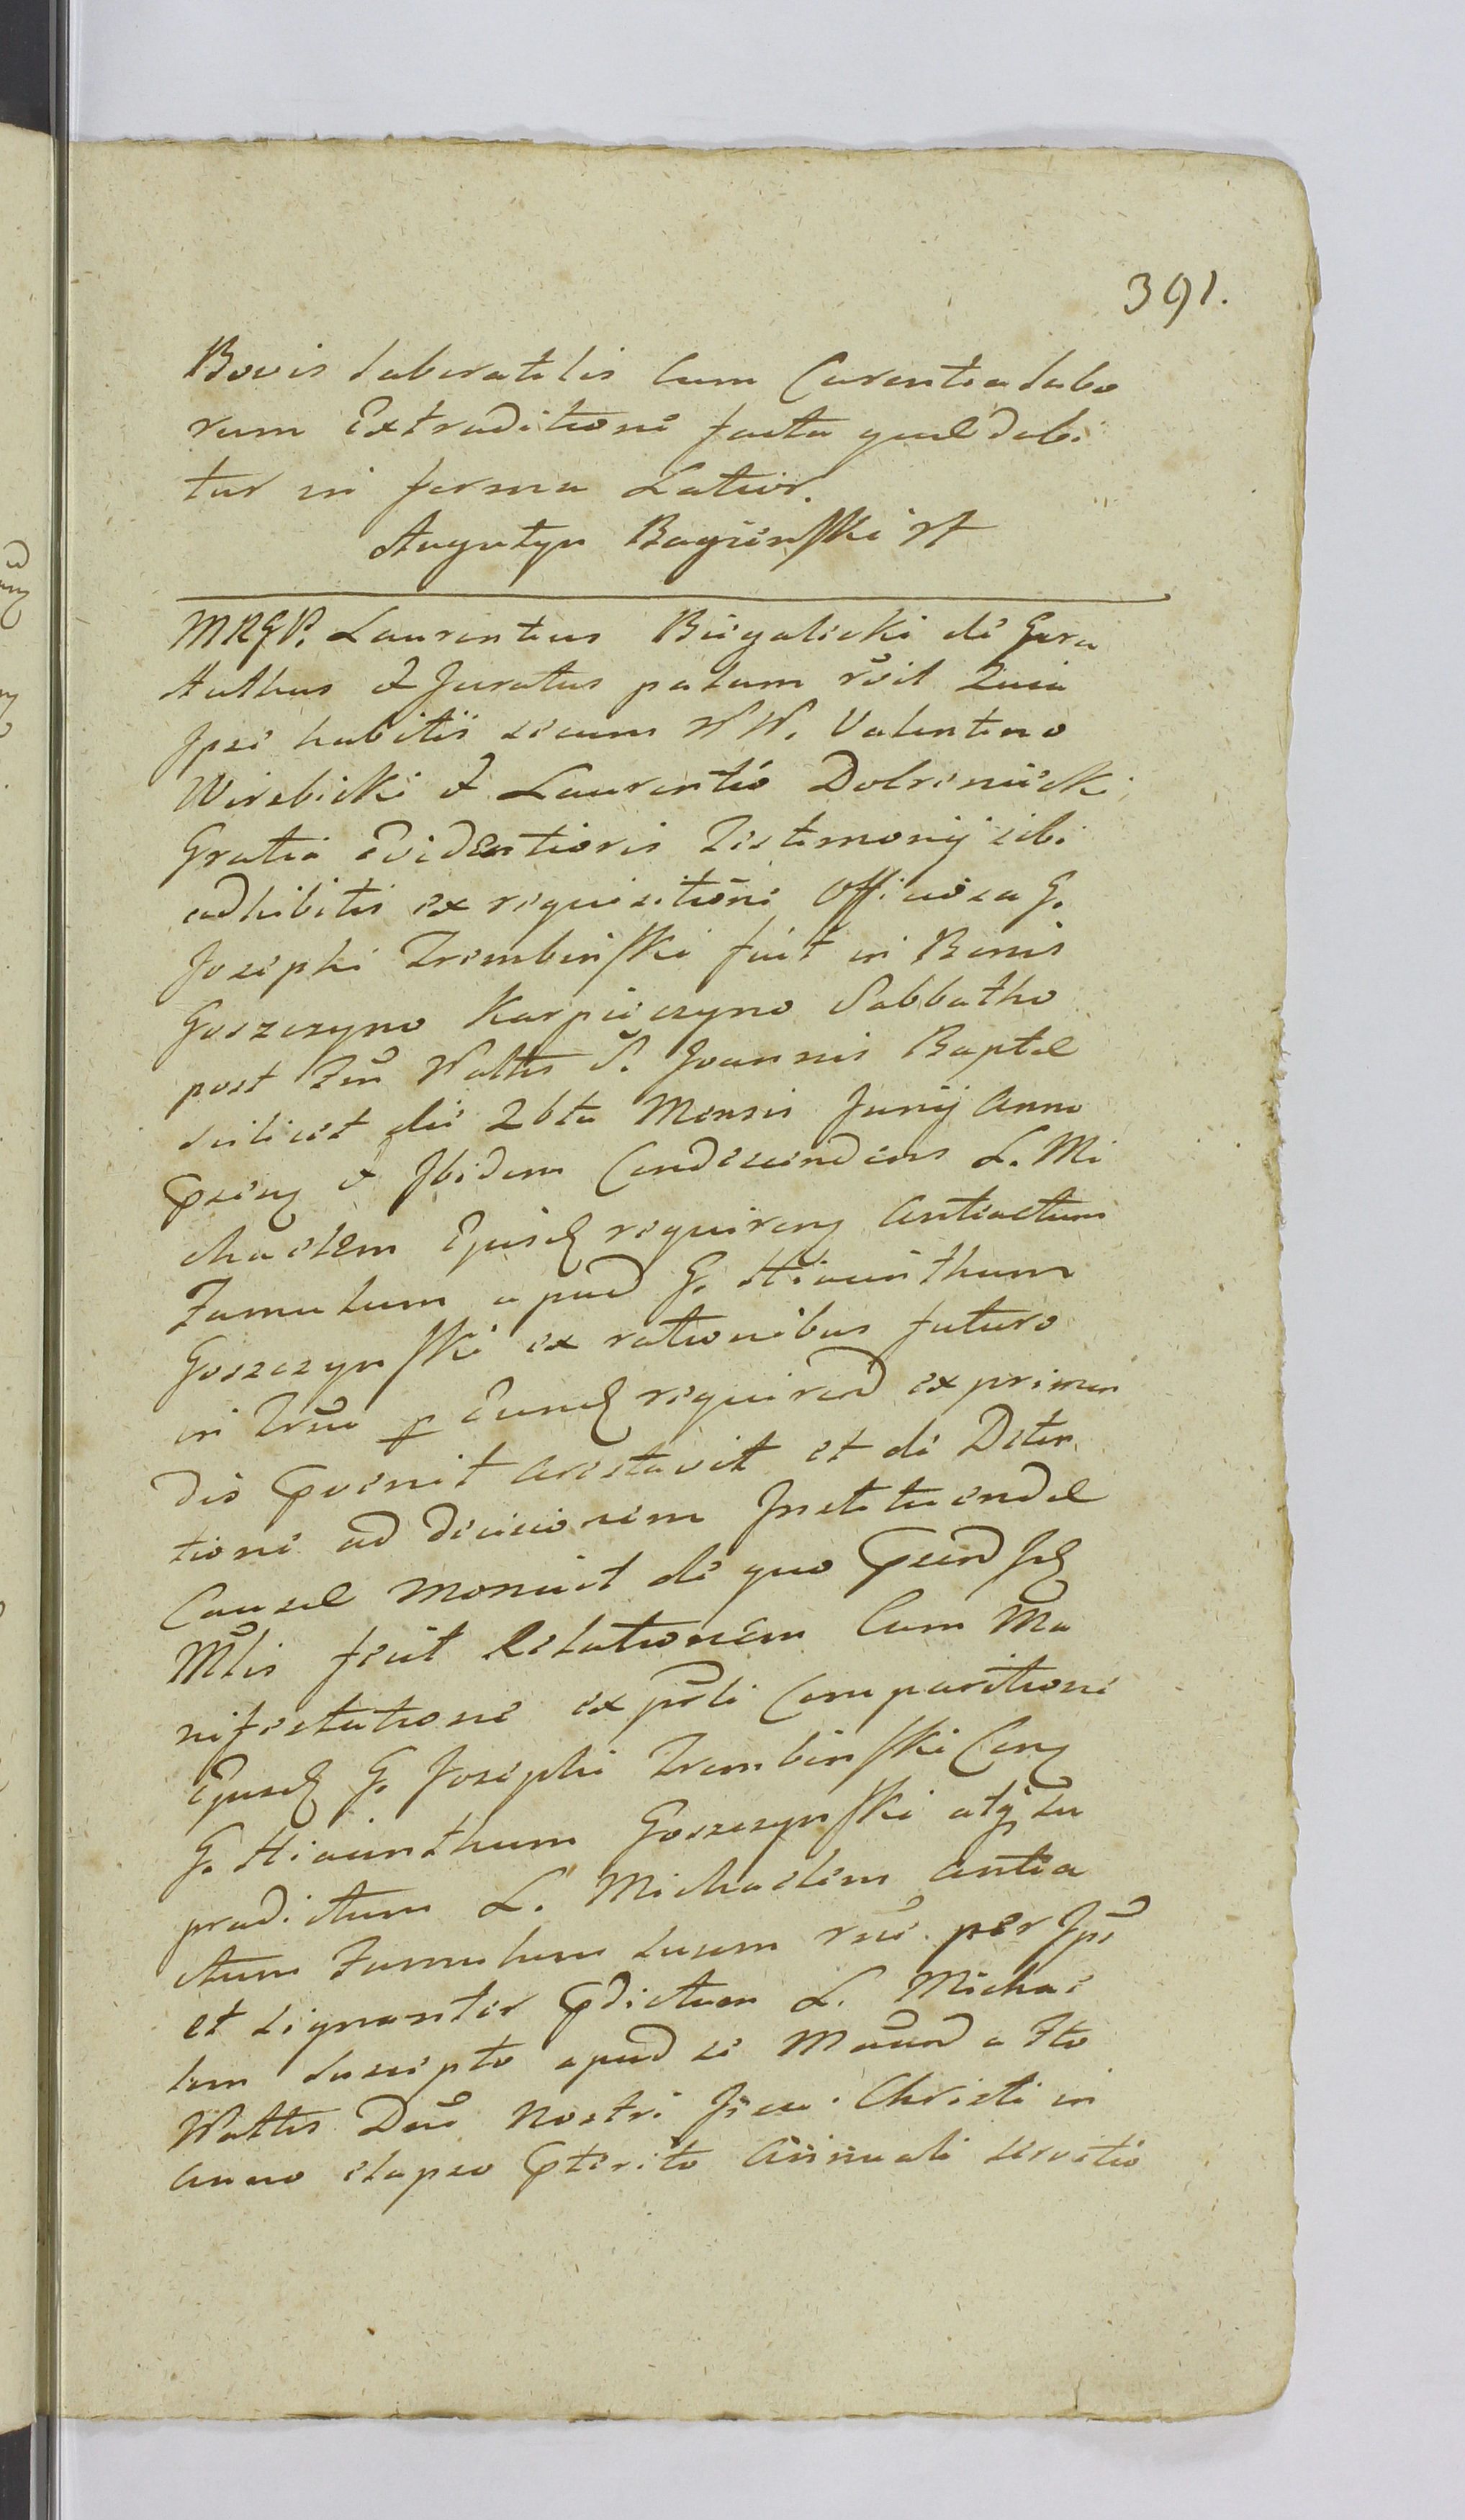 391.
Bovis laboratilis cum Carentia labo
rum Extraditione facta quae dabi
tur in forma Latior.
Augutyn Bagieński
MRGP. Laurentius Biegalicki de Gura
Authus & Juratus palam rōit Quia
Ipse habitis secum NN. Valentino
Wirzbicki & Laurentio Dobrzenicki
Gratia evidentioris Testimonij sibi
adhibitis ex requisitione Officiosa G.
Josephi Trembinski fuit in Bonis
Goszczyno Karpie czyno Sabbatho
post Fēū Nattis S. Joannis Baptae
scilicet die 26ta Mensis Junij Anno
& Ibidem Condescendens L. Mi
chaelem Ejusd requirens Antiactum
Famulum apud G. Hiacinthum
Goszczynski ex rationibus futuro
in Trmo p Eund requirend exprimen
dis pvenit arestavit et de Deten
tione ad decisionem Instituendae
Causae monuit de quo
Mtlis fecit Relationem Cum Ma
nifestatione ex psli Comparitione
Ejusd G. Josephi Trembinski Con
G. Hiacinthum Goszczynski atq Su
pradictum L. Michaelem antea
ctum Famulum suum rne per Ips
et signanter pdictum L. Michae
lem suscepto apud se a Fto
Nattis Dni Nostri Jesu Christi in
anno elapso pterito Annuali servitio